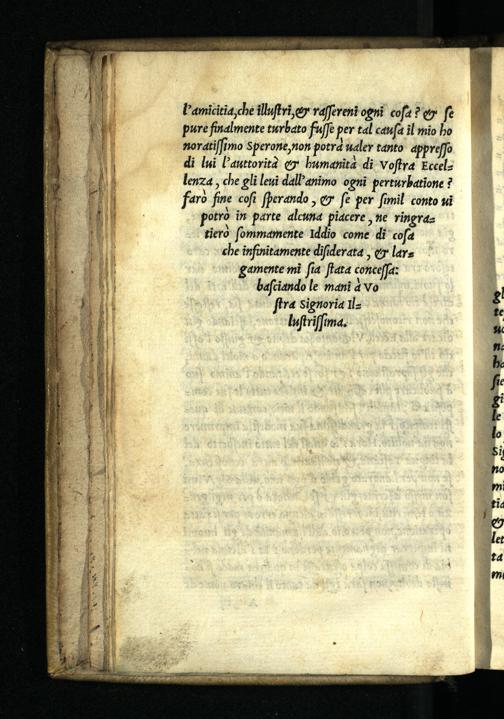 l'amicitia,che illustri,& rassereni ogni cosa? & se
pure finalmente turbato fusse per tal causa il mio ho
noratissimo Sperone,non potrà ualer tanto appresso
di lui l'auttorità & humanità di Vostra Eccel-
lenza, che gli leui dall'animo ogni perturbatione?
farò fine cosi sperando, & se per simil conto ui
potrò in parte alcuna piacere, ne ringra-
tierò sommamente Iddio come di cosa
che infinitamente disiderata, & lar-
gamente mi sia stata concessa:
basciando le mani à Vo
stra Signoria Il-
lustrissima.